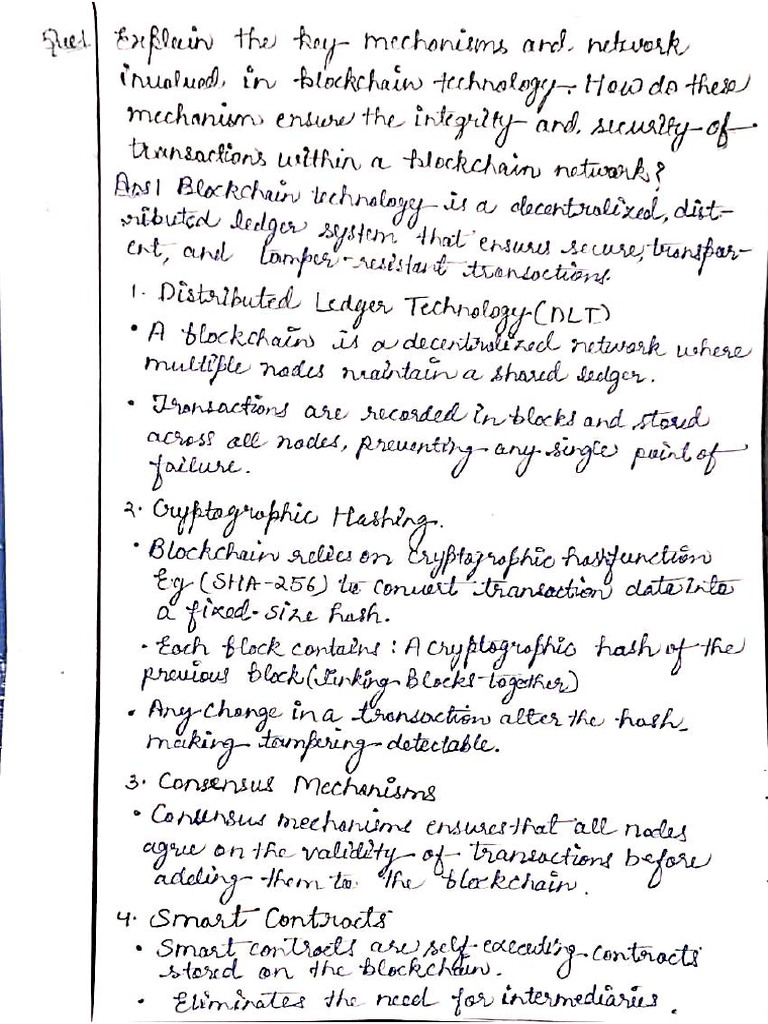 Que1. Explain the key mechanisms and network
involved in blockchain technology. How do these
mechanism ensure the integrity and security of
transactions within a blockchain network?
Ans1 Blockchain technology is a decentralized, dist-
ributed ledger system that ensures secure, transpar-
ent, and tamper-resistant transactions.
1. Distributed Ledger Technology (DLT)
• A blockchain is a decentralized network where
multiple nodes maintain a shared ledger.
• Transactions are recorded in blocks and stored
across all nodes, preventing any single point of
failure.
2. Cryptographic Hashing.
• Blockchain relies on cryptographic hash function
Eg (SHA-256) to convert transaction data into
a fixed-size hash.
• Each block contains : A cryptographic hash of the
previous block (linking Blocks together)
• Any change in a transaction alter the hash
making tampering detectable.
3. Consensus Mechanisms
• Consensus mechanisms ensures that all nodes
agree on the validity of transactions before
adding them to the blockchain.
4. Smart Contracts
• Smart contracts are self-executing contracts
stored on the blockchain.
• Eliminates the need for intermediaries.